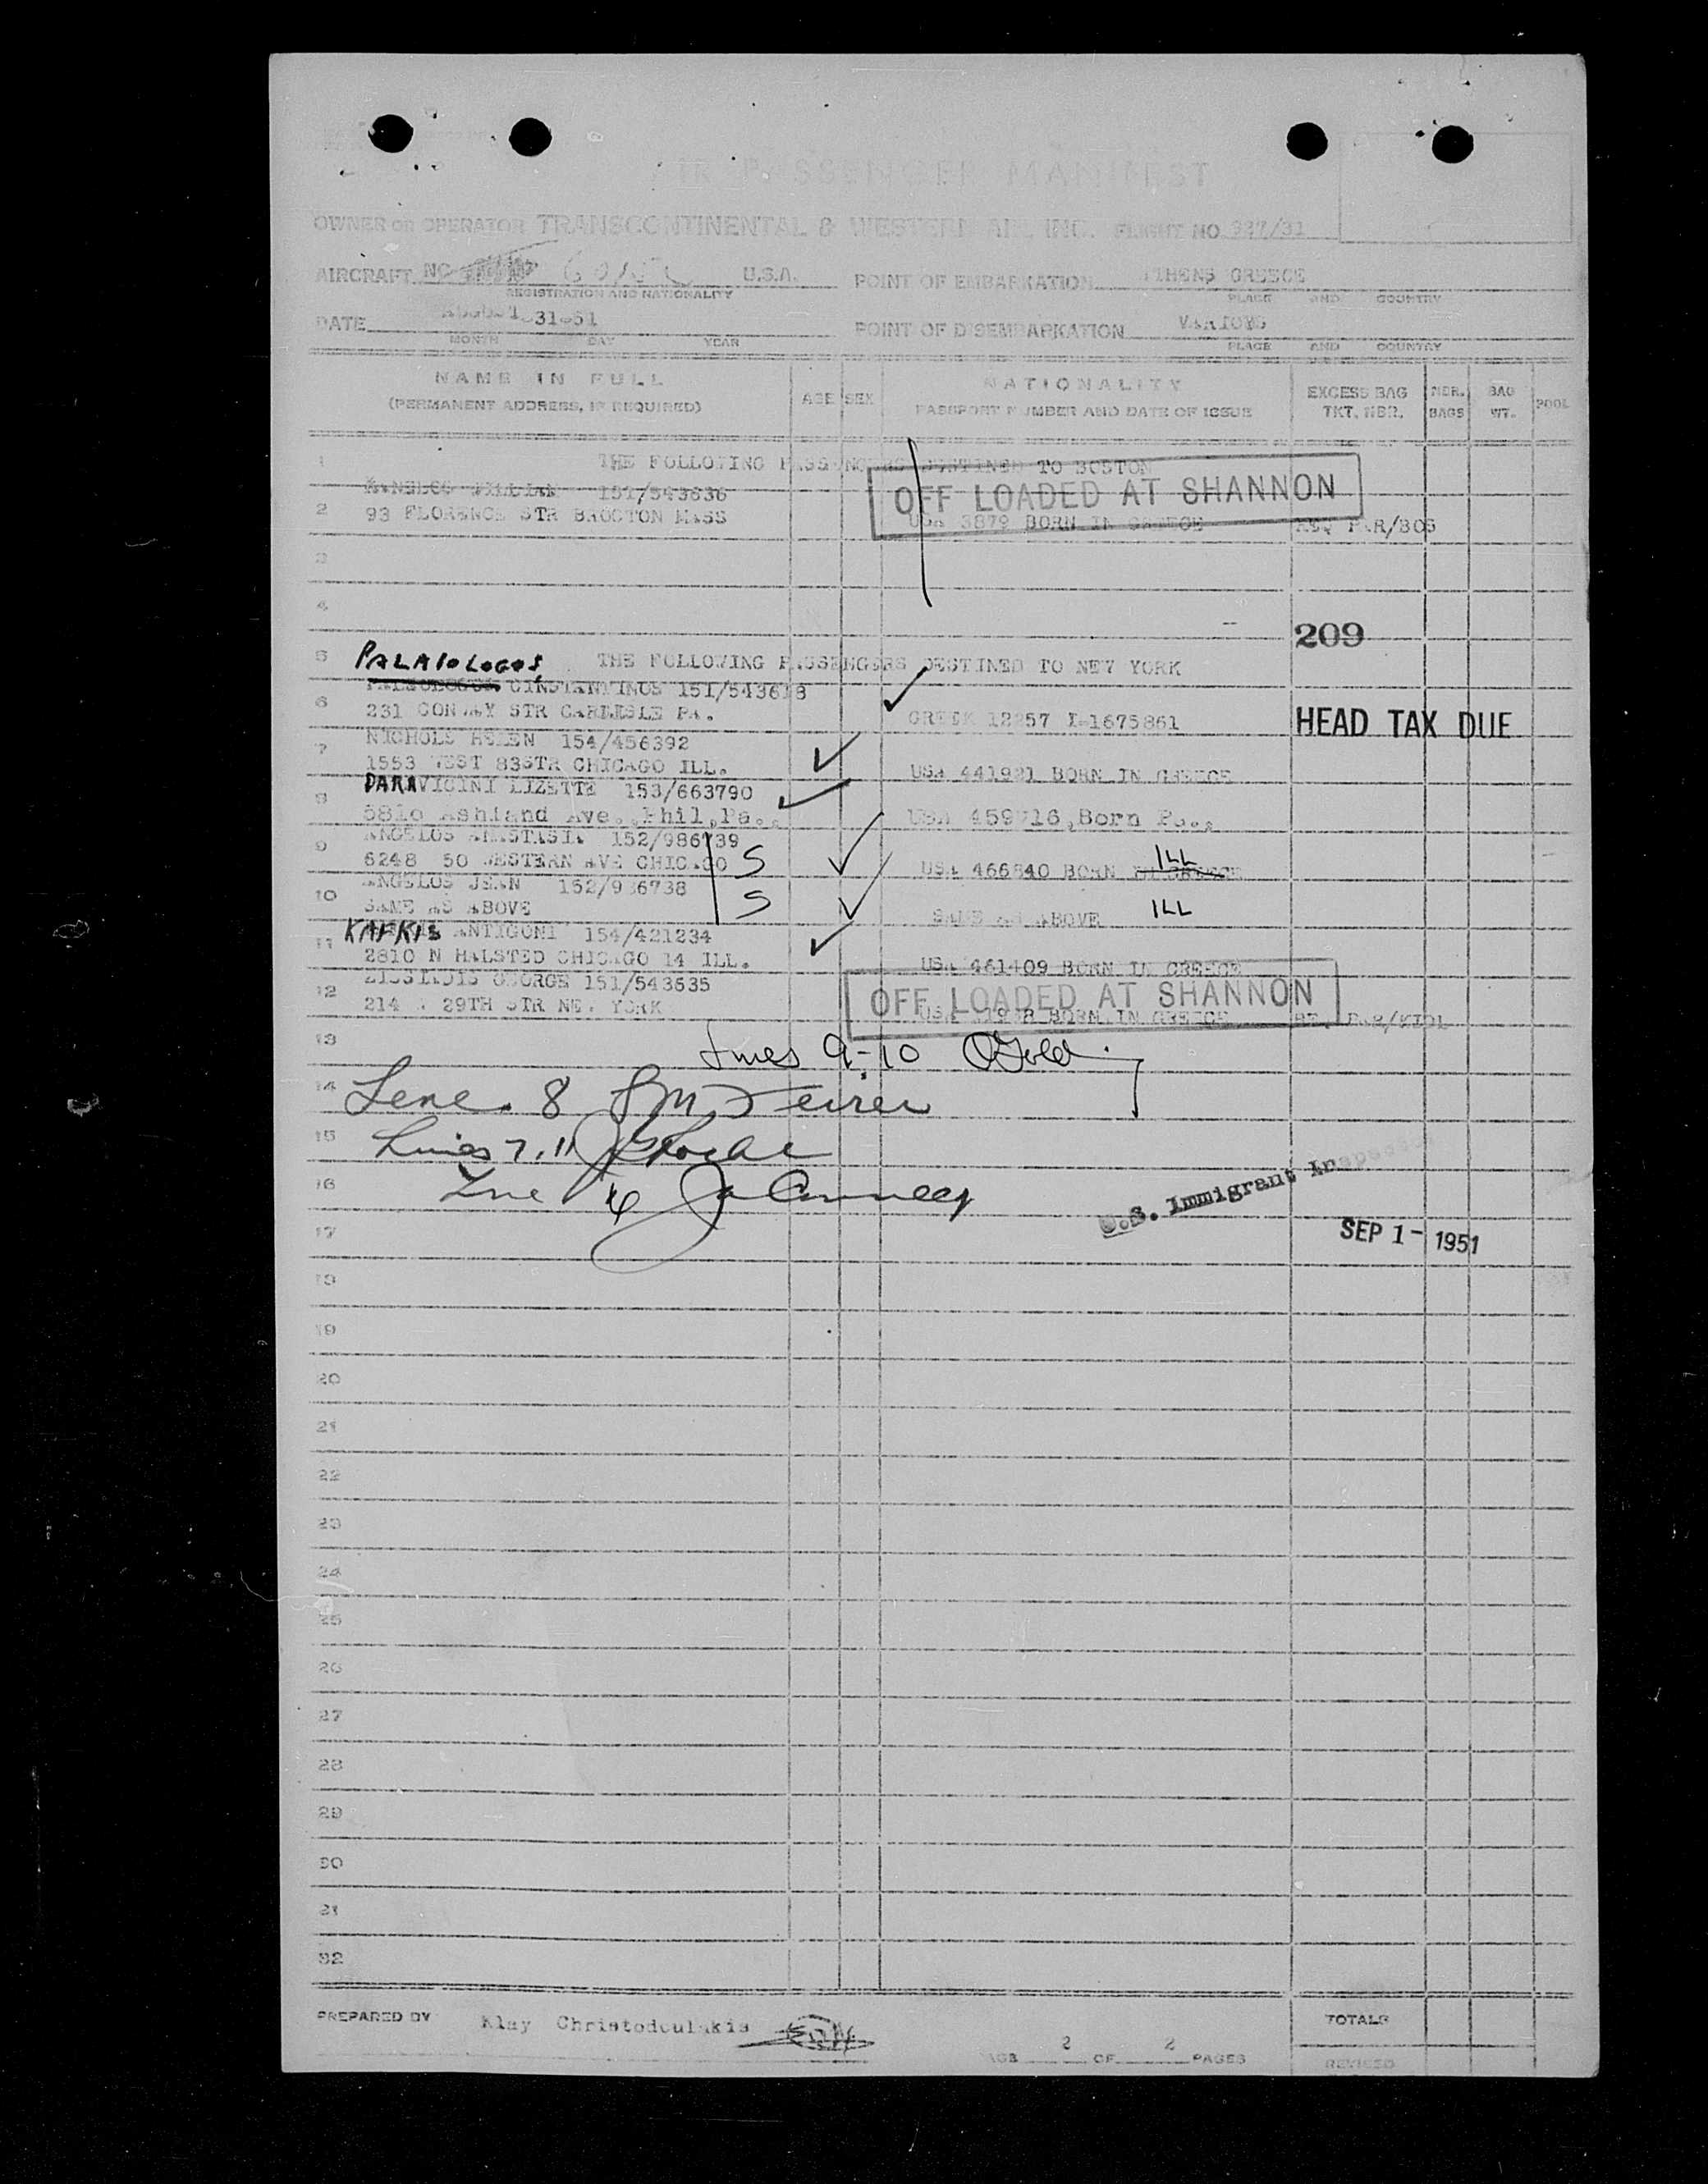 AIR PASSENGER MANIFEST
OWNER OR OPERATOR TRANSCONTINENTAL & WESTERN AIR, INC. FLIGHT NO 927/31
AIRCRAFT NC U.S.A. POINT OF EMBARKATION ATHENS GREECE
REGISTRATION AND NATIONALITY PLACE AND COUNTRY
DATE August-31-51 POINT OF DISEMBARKATION VARIOUS
MONTH DAY YEAR PLACE AND COUNTRY
NAME IN FULL
(PERMANENT ADDRESS, IF REQUIRED) AGE SEX NATIONALITY
PASSPORT NUMBER AND DATE OF ISSUE EXCESS BAG TKT. NBR. NBR. BAGS BAG WT. POOL
1 THE FOLLOWING PASSENGERS DESTINED TO BOSTON
151/543636 OFF LOADED AT SHANNON
2 93 FLORENCE STR BROCTON MASS USA 3879 BORN IN GREECE PAR/BOS
3
4
209
5 PALAIOLOGOS THE FOLLOWING PASSENGERS DESTINED TO NEW YORK
CINSTANTINOS 151/543618
6 231 CONWAY STR CARLISLE PA. GREEK 12257 I-1675861 HEAD TAX DUE
7 NICHOLS HELEN 154/456392
1553 WEST 83STR CHICAGO ILL. USA 441921 BORN IN GREECE
8 PARAVICINI LIZETTE 153/663790
5810 Ashland Ave., Phil, Pa., USA 459716, Born Pa.,
9 ANGELOS ANASTASIA 152/986739
6248 SO WESTERN AVE CHICAGO S USA 466840 BORN IN GREECE ILL
10 ANGELOS JEAN 152/936738
SAME AS ABOVE S SAME AS ABOVE ILL
11 KAFKIS ANTIGONI 154/421234
2810 N HALSTED CHICAGO 14 ILL. USA 461409 BORN IN GREECE
12 GEORGE 151/543635 OFF LOADED AT SHANNON
214 29TH STR NEW YORK BORN IN GREECE
13 Lines 9-10
14 Line 8
15 Lines 7, 11
16 Line 6
U.S. Immigrant Inspector
17 SEP 1- 1951
18
19
20
21
22
23
24
25
26
27
28
29
30
31
32
PREPARED BY Klay Christodoulakis TOTALS
PAGE 2 OF 2 PAGES REVISED